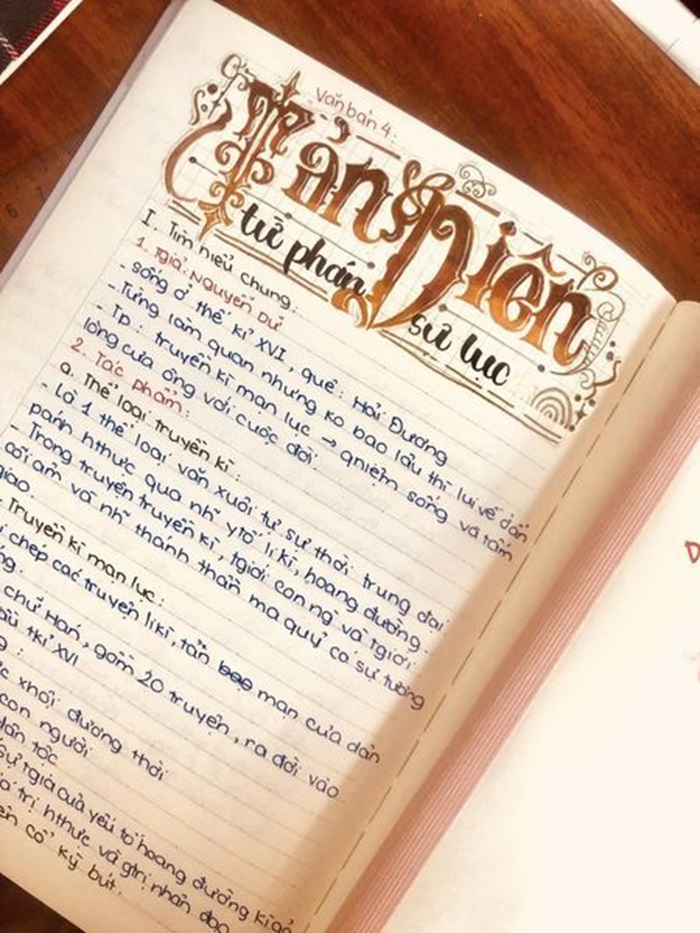 Văn bản 4:
Tản Viên
từ phán sự lục
I. Tìm hiểu chung:
1. Tgiả: Nguyễn Dữ
- sống ở thế kỉ XVI, quê: Hải Dương
- Từng làm quan nhưng ko bao lâu thì lui về ẩn
- Tp: truyền kì mạn lục → qniệm sống và tấm
lòng của ông với cuộc đời.
2. Tác phẩm:
a. Thể loại truyền kì:
- Là 1 thể loại văn xuôi tự sự thời trung đại
pánh hthực qua nh~ ytố li kì, hoang đường.
- Trong truyện truyền kì, tgiới con ng và tgiới
cõi âm và nh~ thánh thần ma quỷ có sự tương
giao.
Truyền kì mạn lục:
chép các truyện li kì, tản mạn của dân
chữ Hán, gồm 20 truyện, ra đời vào
tkỉ XVI
khỏi đường thời
con người
dân tộc
sự tgia của yếu tố hoang đường kì ảo
trị hthực và gtrị nhân đạo
cổ kỳ bút.